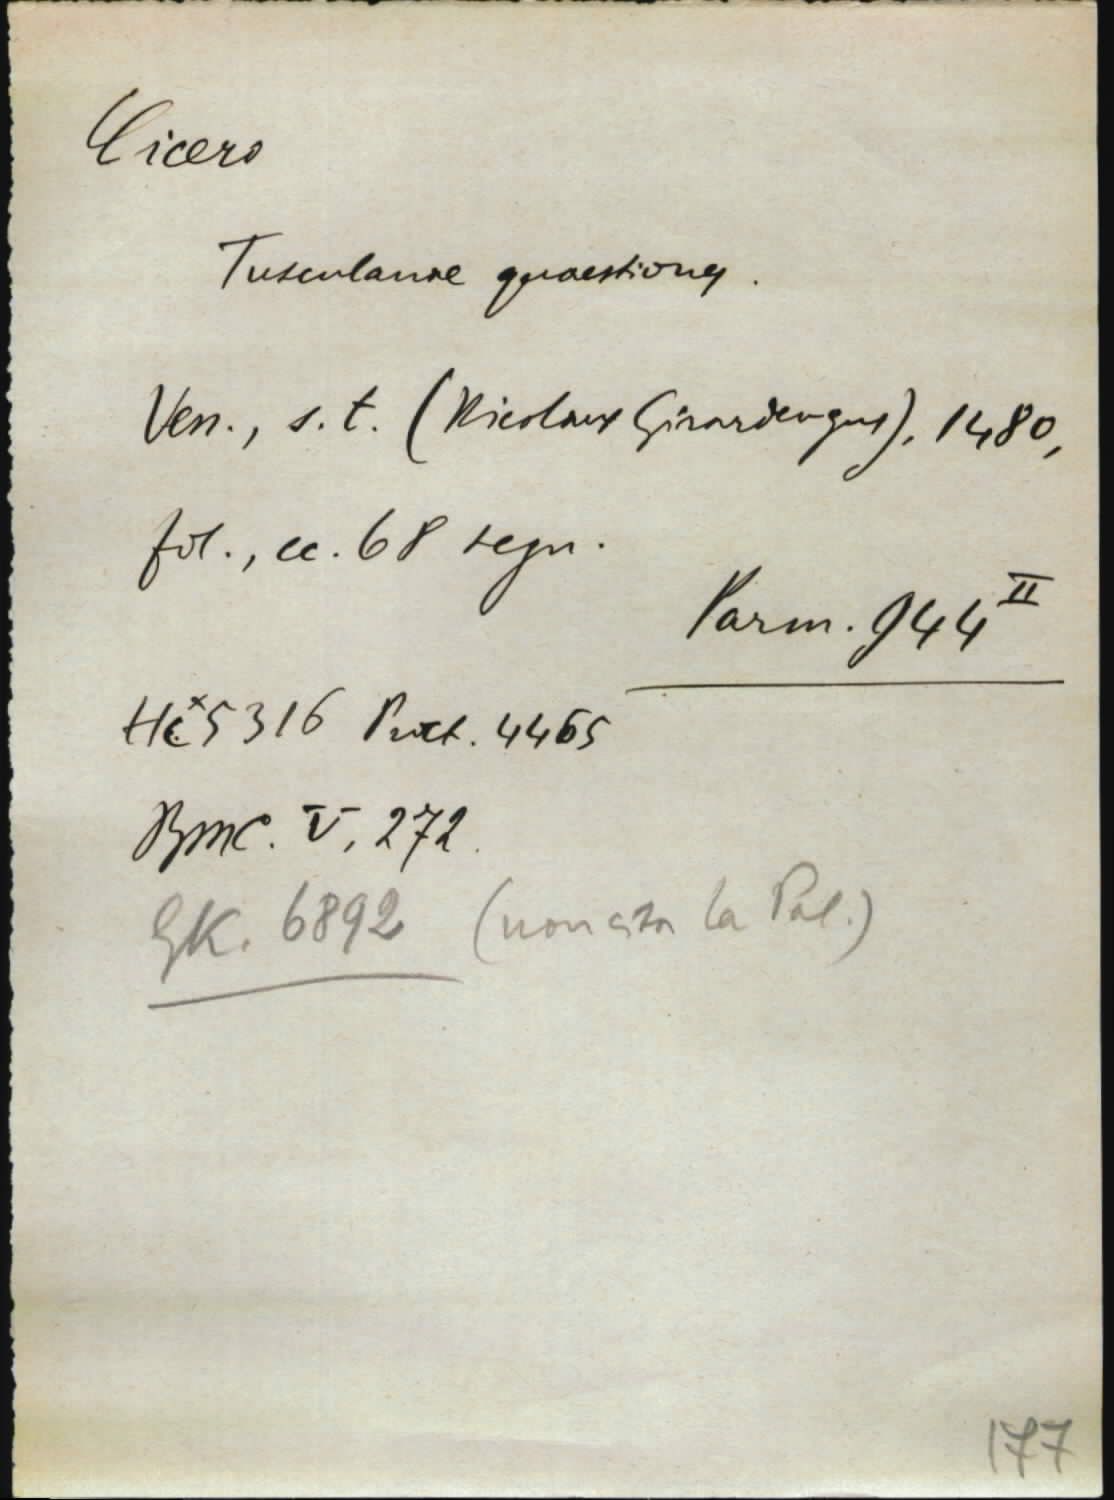 Cicero
Tusculanae quaestiones.
Ven., s. t. (Nicolaus Girardengus), 1480,
fol., cc. 68 segn.
Parm. 944 II
HC* 5316 Proct. 4465
BMC. V, 272.
GK. 6892 (non cita la Pal.)
177